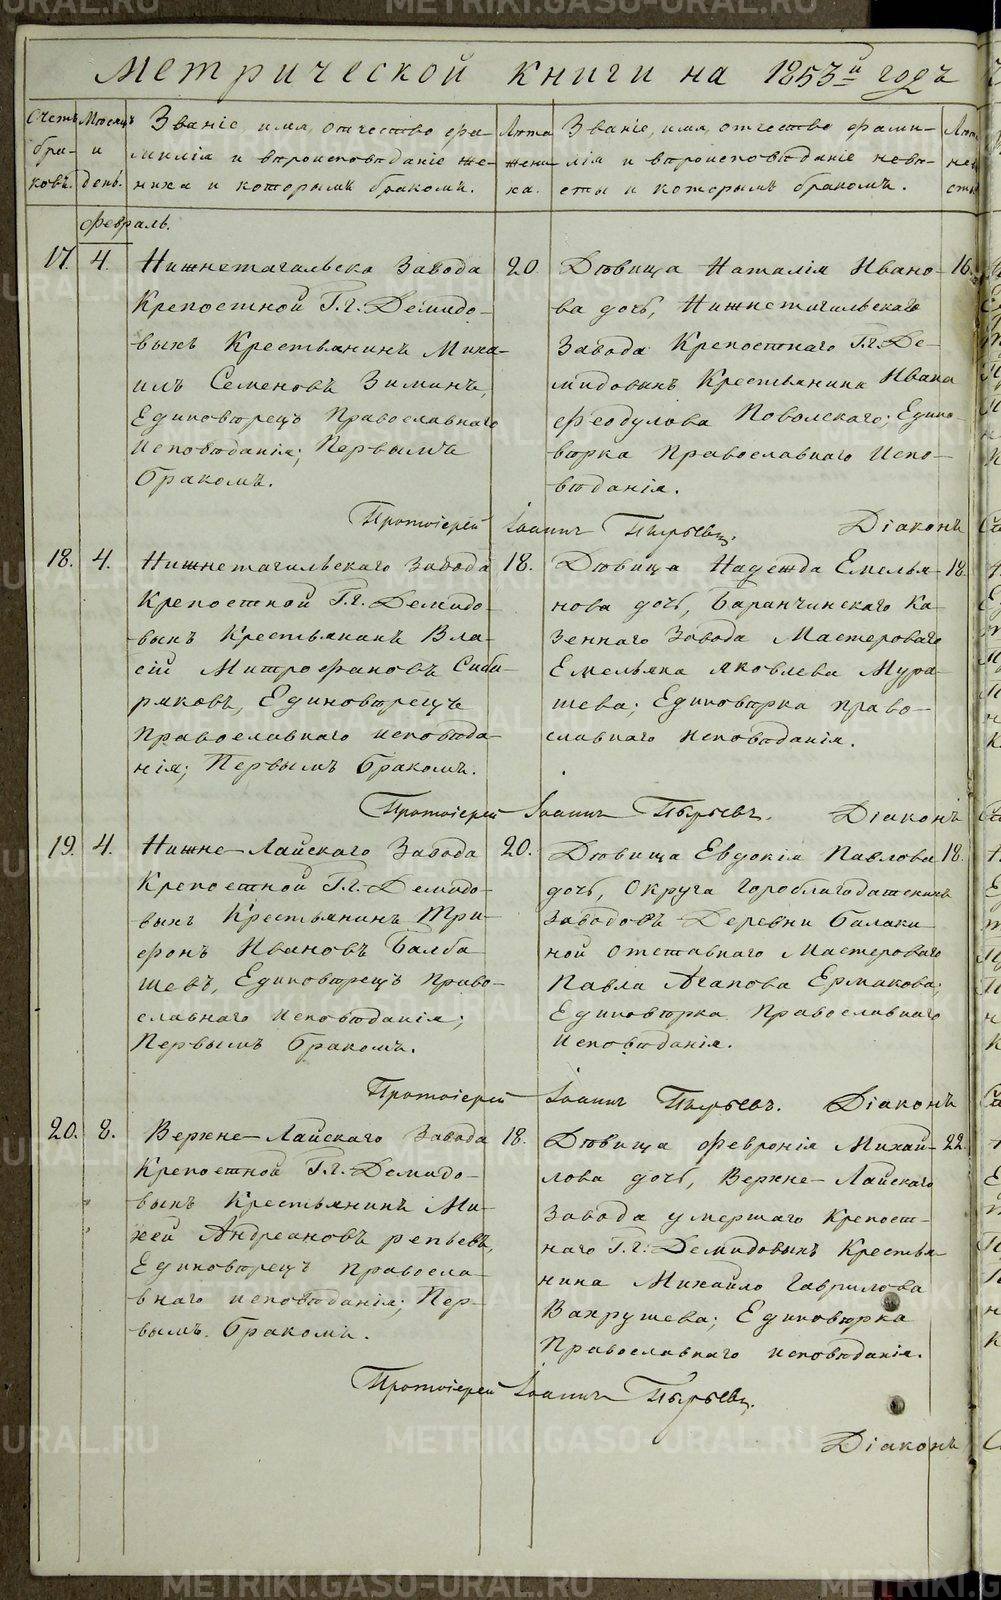 Метрической книги на 1853й годъ
Счетъ браковъ.
Месяцъ и день.
Званіе, имя, отчество, фамилія и вѣроисповѣданіе жениха и которымъ бракомъ.
Лѣта жениха.
Званіе, имя, отчество, фамилія и вѣроисповѣданіе невѣсты и которымъ бракомъ.
Февраль.
17. 4.
Нижнетагильско Завода
Крепостной Г.г. Демидо-
выхъ Крестьянинъ Миха-
илъ Семеновъ Зиминъ,
Единовѣрецъ Православнаго
Исповѣданія; Первымъ
бракомъ.
20.
Дѣвица Наталія Ивано-
ва дочь, Нижнетагильскаго
Завода Крепостнаго Г.г. Де-
мидовыхъ Крестьянина Ивана
Феодулова Поволскаго; Едино-
вѣрка Православнаго Испо-
вѣданія.
16.
Протоіерей Іоаннъ Пырьевъ. Діаконъ
18. 4.
Нижнетагильскаго Завода
Крепостной Г.г. Демидо-
выхъ Крестьянинъ Вла-
сій Митрофановъ Сиби-
ряковъ, Единовѣрецъ
Православнаго исповѣда-
нія; Первымъ бракомъ.
18.
Дѣвица Надежда Емелья-
нова дочь, Баранчинскаго Ка-
зеннаго Завода Мастероваго
Емельяна Яковлева Мура-
шева; Единовѣрка право-
славнаго Исповѣданія.
18.
Протоіерей Іоаннъ Пырьевъ. Діаконъ
19. 4.
Нижне-Лайскаго Завода
Крепостной Г.г. Демидо-
выхъ Крестьянинъ Три-
фонъ Ивановъ Балба-
шевъ, Единовѣрецъ Право-
славнаго Исповѣданія;
Первымъ бракомъ.
20.
Дѣвица Евдокія Павлова
дочь, Округа Гороблагодатскихъ
Заводовъ Деревни Балаки-
ной отставнаго Мастероваго
Павла Агапова Ермакова;
Единовѣрка Православнаго
Исповѣданія.
18.
Протоіерей Іоаннъ Пырьевъ. Діаконъ
20. 8.
Верхне-Лайскаго Завода
Крепостной Г.г. Демидо-
выхъ Крестьянинъ Ми-
хей Андреановъ репьевъ,
Единовѣрецъ Правосла-
внаго исповѣданія; Пер-
вымъ бракомъ.
18.
Дѣвица Февронія Михай-
лова дочь, Верхне-Лайскаго
Завода умершаго Крепост-
наго Г.г. Демидовыхъ Крестья-
нина Михайло Гаврилова
Вахрушева; Единовѣрка
Православнаго исповѣданія.
22.
Протоіерей Іоаннъ Пырьевъ.
Діаконъ
METRIKI.GASO-URAL.RU